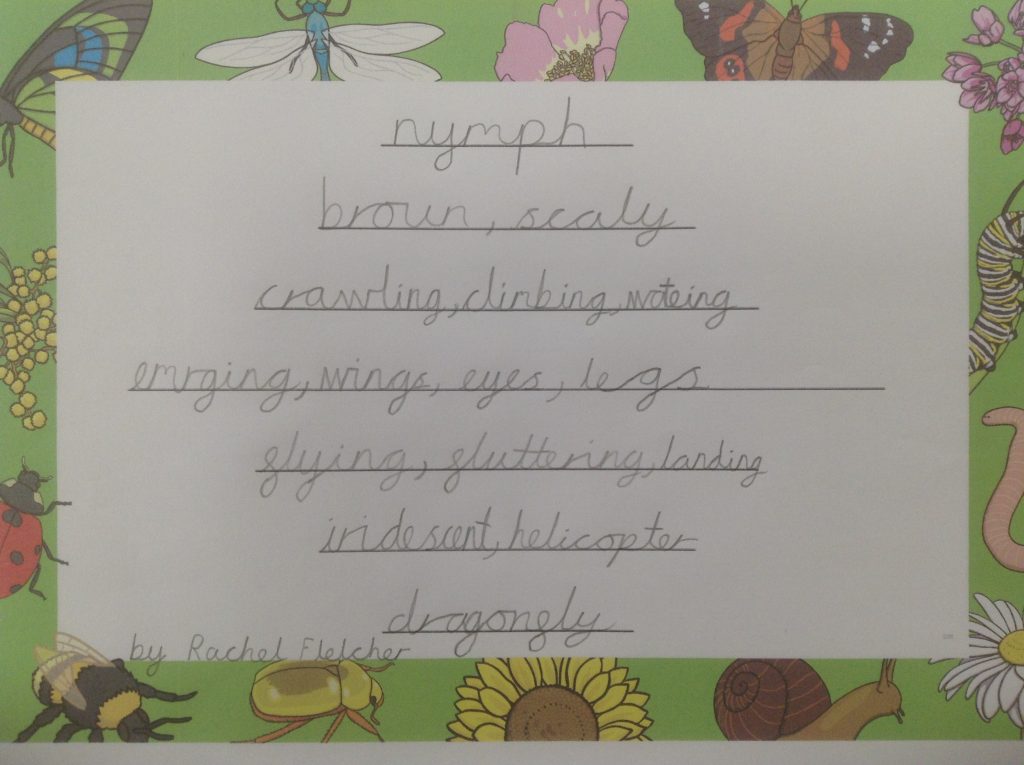 nymph
brown, scaly
crawling, climbing, wateing
emrging, wings, eyes, legs
flying, fluttering, landing
iridescent, helicopter
dragonfly
by Rachel Fletcher